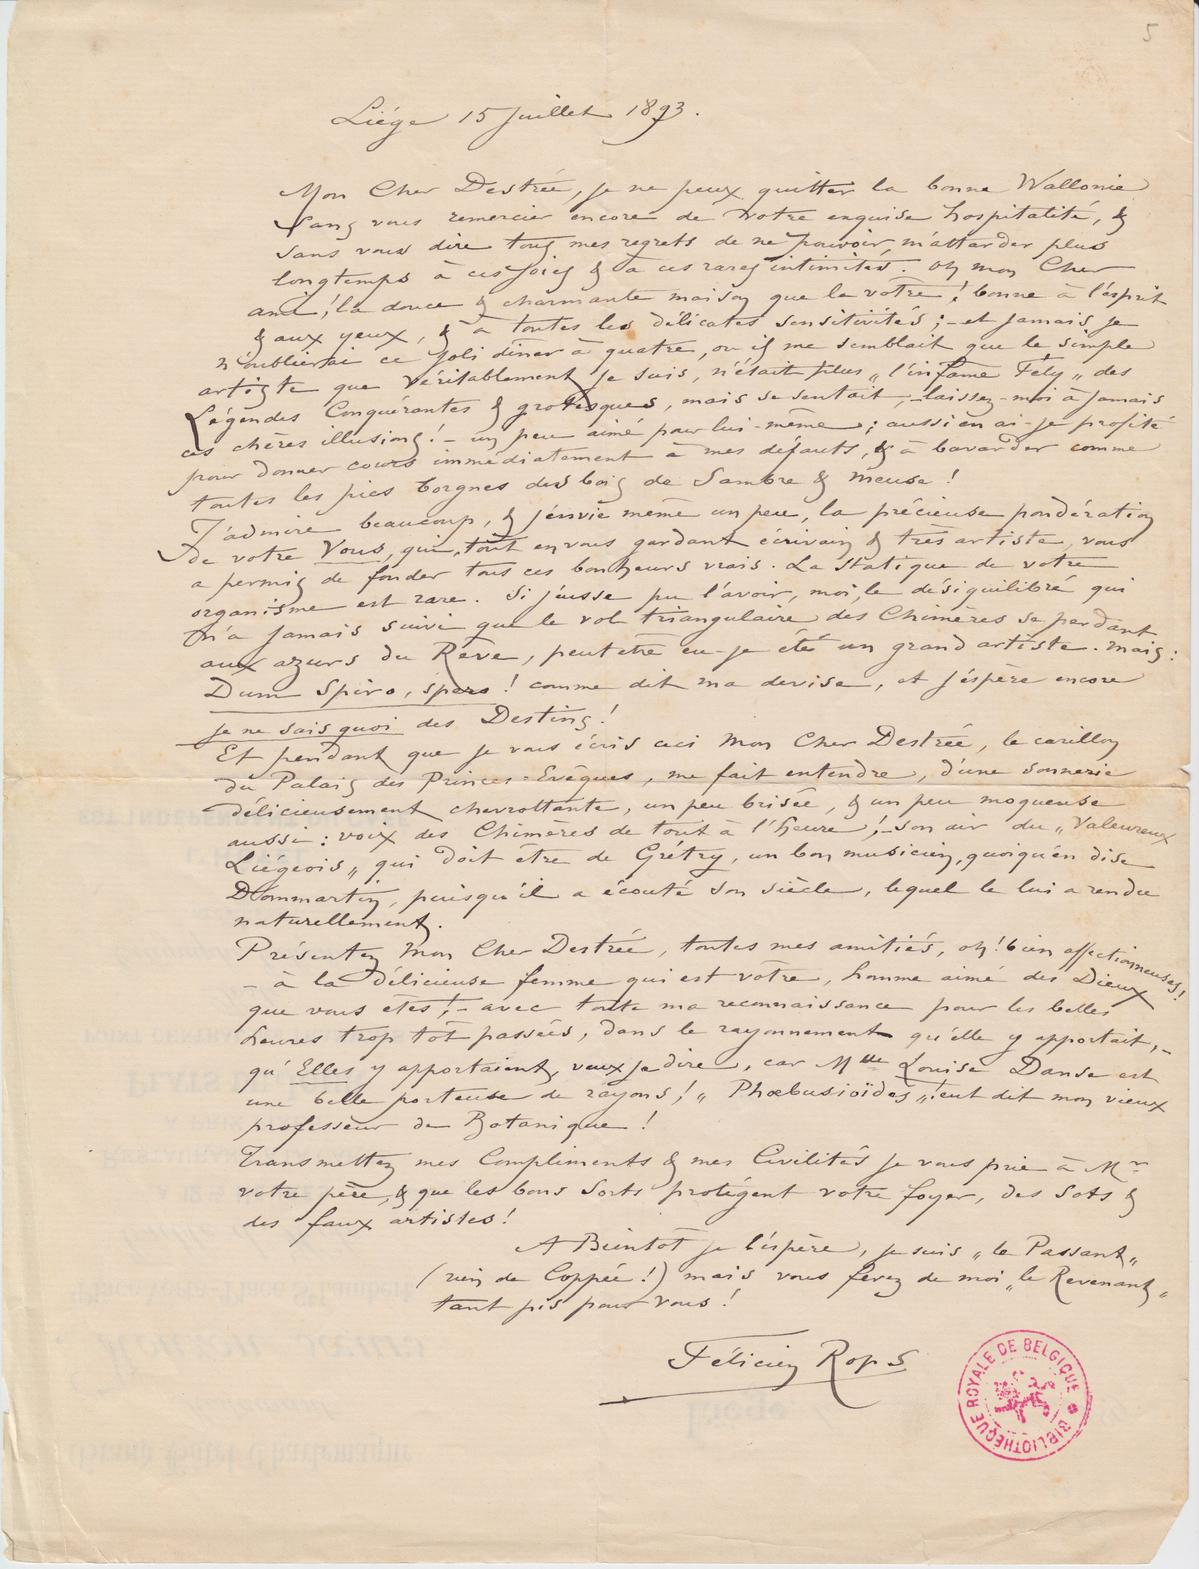 5
Liége 15 Juillet 1893.
Mon Cher Destrée, je ne peux quitter la bonne Wallonie
sans vous remercier encore de votre exquise hospitalité, &
sans vous dire tous mes regrets de ne pouvoir, m'attarder plus
longtemps à ces joies & à ces rares intimités. Oh mon Cher
ami, la douce & charmante maison que la vôtre! bonne à l'esprit
& aux yeux, & à toutes les délicates sensitivités; - et jamais je
n'oublierai ce joli dîner à quatre, où il me semblait que le simple
artiste que véritablement je suis, n'était plus „l'infâme Fély„ des
Légendes Conquérantes & grotesques, mais se sentait, - laissez-moi à jamais
ces chères illusions! - un peu aimé pour lui-même; aussi en ai-je profité
pour donner cours immédiatement à mes défauts, & à bavarder comme
toutes les pies borgnes des bois de Sambre & Meuse!
J'admire beaucoup, & j'envie même un peu, la précieuse pondération
de votre Vous, qui, tout en vous gardant écrivain & très artiste, vous
a permis de fonder tous ces bonheurs vrais. La Statique de votre
organisme est rare. Si j'eusse pu l'avoir, moi, le déséquilibré qui
n'a jamais suivi que le vol triangulaire des Chimères se perdant
aux azurs du Rêve, peutetre eu-je été un grand artiste. Mais:
Dum Spiro, spero! comme dit ma devise, et j'espère encore
je ne sais quoi des Destins!
Et pendant que je vous écris ceci Mon Cher Destrée, le carillon
du Palais des Princes-Evêques, me fait entendre, d'une sonnerie
délicieusement chevrottante, un peu brisée, & un peu moqueuse
aussi: voix des Chimères de tout à l'heure!, - son air du „Valeureux
Liégeois„ qui doit être de Grétry, un bon musicien, quoiqu'en dise
Dommartin, puisqu'il a écouté son siècle, lequel le lui a rendu
naturellement.
Présentez Mon Cher Destrée, toutes mes amitiés, oh! bien affectionneuses!
- à la délicieuse femme qui est vôtre, homme aimé des Dieux
que vous êtes!, - avec toute ma reconnaissance pour les belles
heures trop tôt passées, dans le rayonnement qu'elle y apportait, -
qu'Elles y apportaient, veux je dire, car Mlle Louise Danse est
une belle porteuse de rayons! „Phœbusioïdes„! eut dit mon vieux
professeur de Botanique!
Transmettez mes Compliments & mes Civilités je vous prie à Mr
votre père, & que les bons sorts protégent votre foyer, des sots &
des faux artistes!
A Bientôt je l'éspère, je suis „le Passant„
(rien de Coppée!) mais vous ferez de moi „le Revenant„
tant pis pour vous!
Félicien Rops
BIBLIOTHÈQUE ROYALE DE BELGIQUE